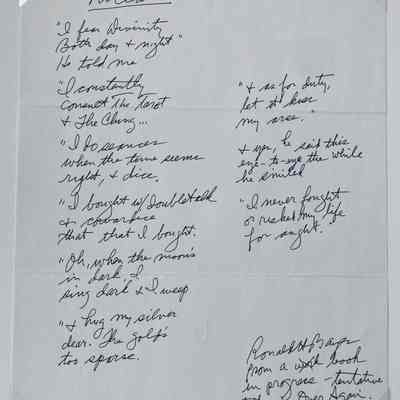 "I fear Divinity
Both day & night"
He told me
"I constantly
consult The Tarot
& The Ching...
"I do seances
when the time seems
right, & dice.
"I bought w/ doubletalk
& cowardice
that that I bought.
"Oh, when the moon's
in dark, I
sing dark & I weep
"& hug my silver
dear. The gold's
too sparse.
"& as for duty,
let it kiss
my arse."
& yes, he said this
eye-to-eye the while
he smiled
"I never fought
or risked my life
for aught.
Ronald H. Bayes
From a book
in progress - tentative
Over Again.